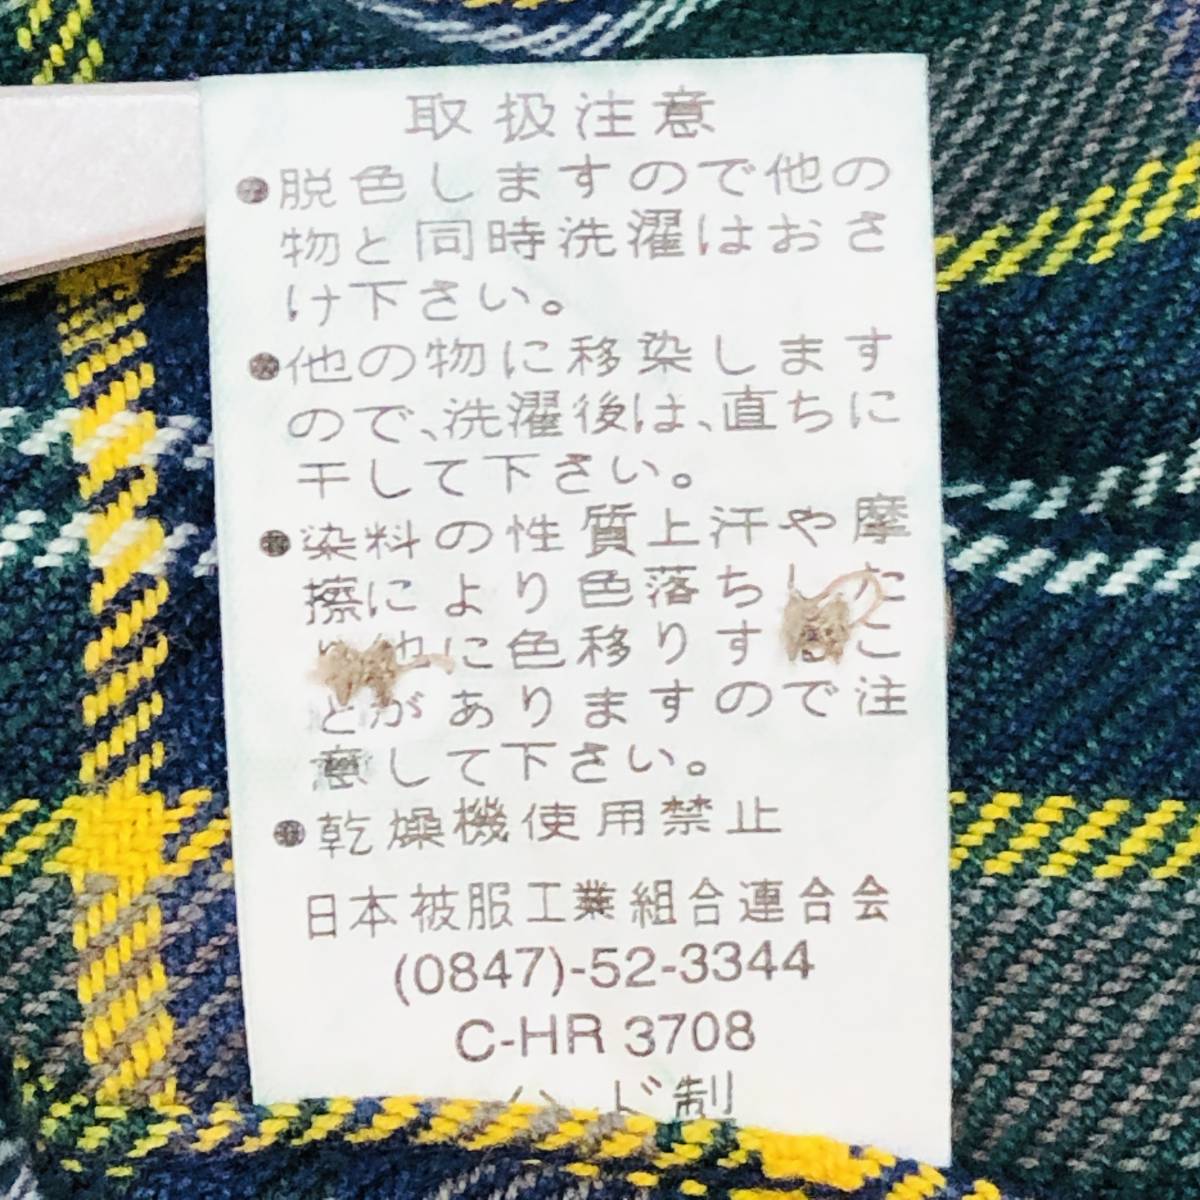 取扱注意
●脱色しますので他の
物と同時洗濯はおさ
け下さい。
●他の物に移染します
ので、洗濯後は、直ちに
干して下さい。
●染料の性質上汗や摩
擦により色落ちした
り他に色移りするこ
とがありますので注
意して下さい。
●乾燥機使用禁止
日本被服工業組合連合会
(0847)-52-3344
C-HR 3708
制